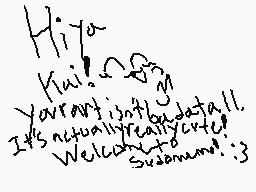 Hiya
Kai!
your art isn't bad at all.
It's actually really cute!
Welcome to
Sudomemo! :3